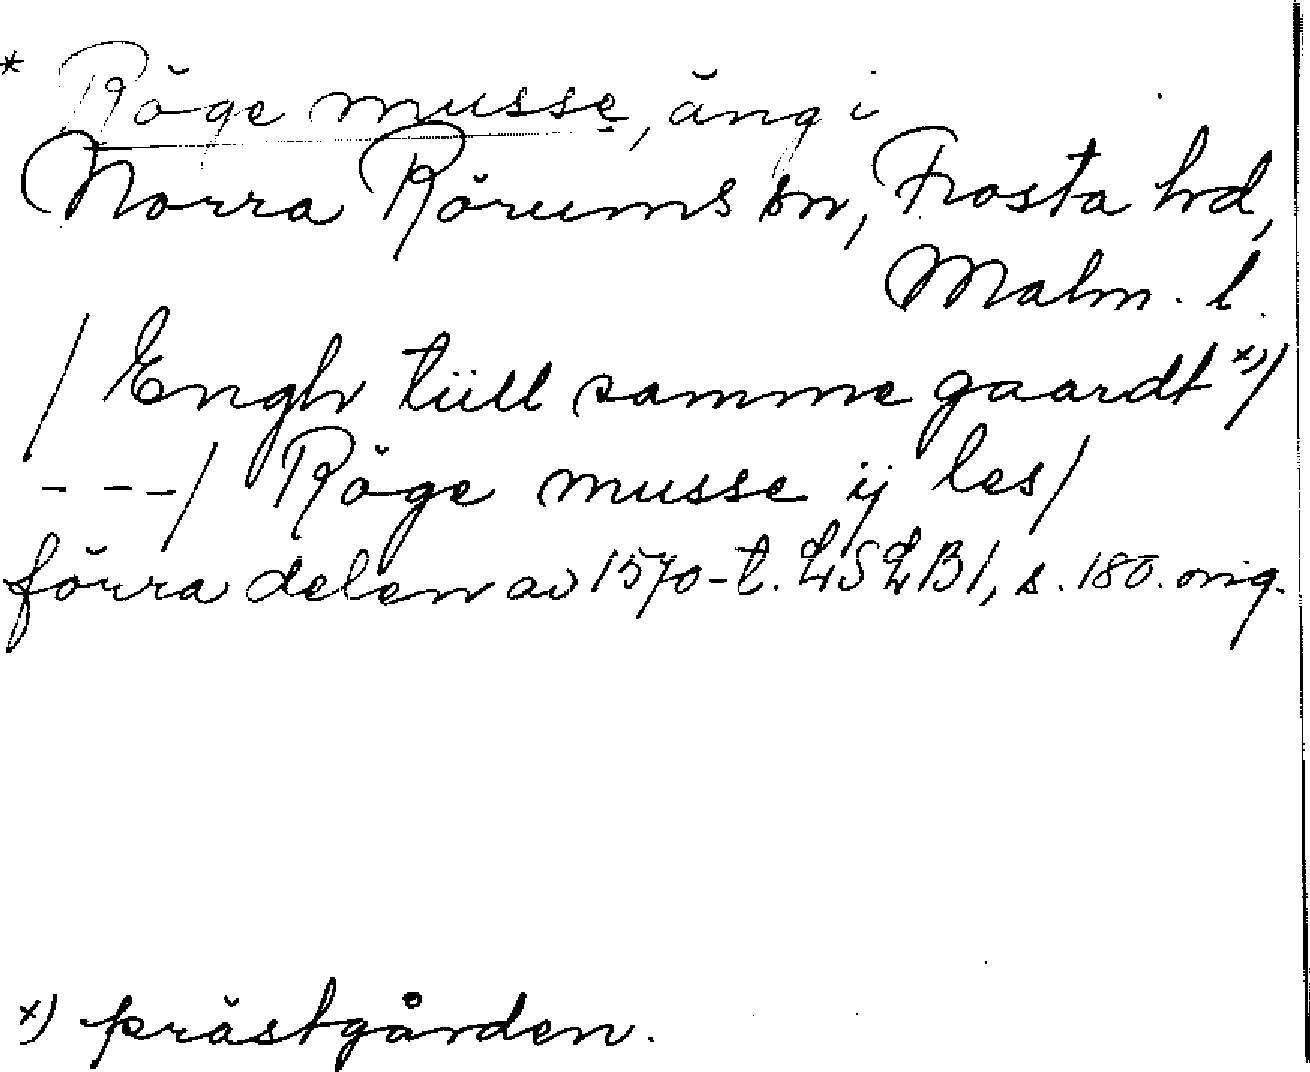 * Röge musse, äng i
Norra Rörums sn, Frosta hd,
Malm. l.
/ Engh tiill samme gaardt x) /
- - - / Röge musse ij les /
förra delen av 1570-t. LSLB 1, s. 180. orig.
x) prästgården.